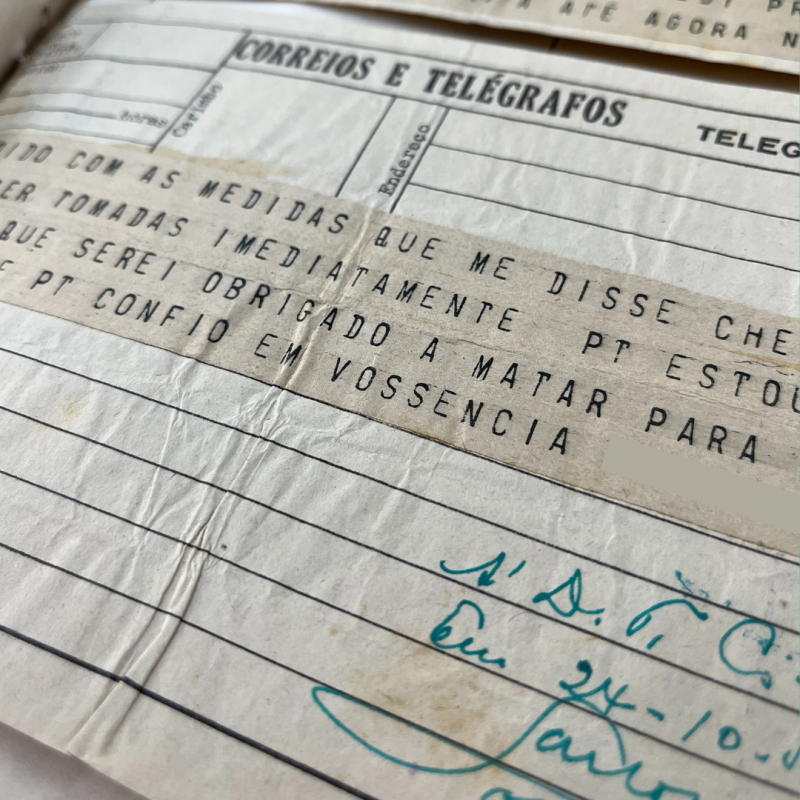 ATÉ AGORA N
CORREIOS E TELÉGRAFOS
TELEG
horas
Carimbo
Endereço
IDO COM AS MEDIDAS QUE ME DISSE CHE
ER TOMADAS IMEDIATAMENTE PT ESTOU
QUE SEREI OBRIGADO A MATAR PARA
E PT CONFIO EM VOSSENCIA
À D. T. C.
Em 24-10-